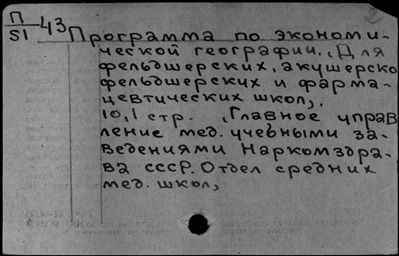 П 43
51
Программа по экономи-
ческой географии. (Для
фельдшерских, акушерско
фельдшерских и фарма-
цевтических школ),
10,1 стр. (Главное управ
ление мед. учебными за-
ведениями Наркомздра-
ва СССР. Отдел средних
мед. школ,